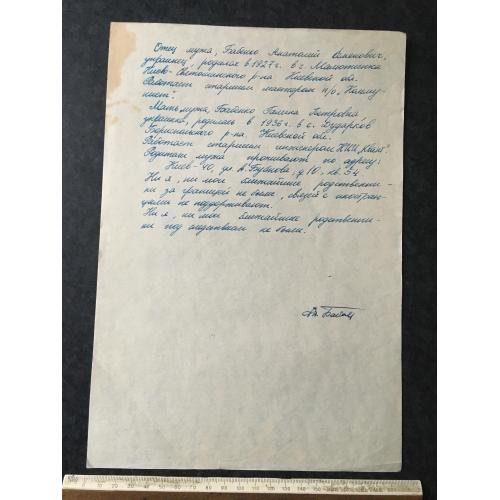 Отец мужа, Бабенко Анатолий Семенович,
украинец, родился в 1927 г. в с. Малютинка
Киево-Святошинского р-на Киевской обл.
Работает старшим мастером п/о „Комму-
нист".
Мать мужа, Бабенко Галина Петровна
украинка, родилась в 1936 г. в с. Дударков
Бориспольского р-на Киевской обл.
Работает старшим инженером НИИ „Квант".
Родители мужа проживают по адресу:
Киев-40, ул. А. Бубнова, д 10, кв. 54
Ни я, ни мои ближайшие родственни-
ки за границей не были, связей с иностран-
цами не поддерживают.
Ни я, ни мои ближайшие родственни-
ки под следствием не были.
10 20 30 40 50 60 70 80 90